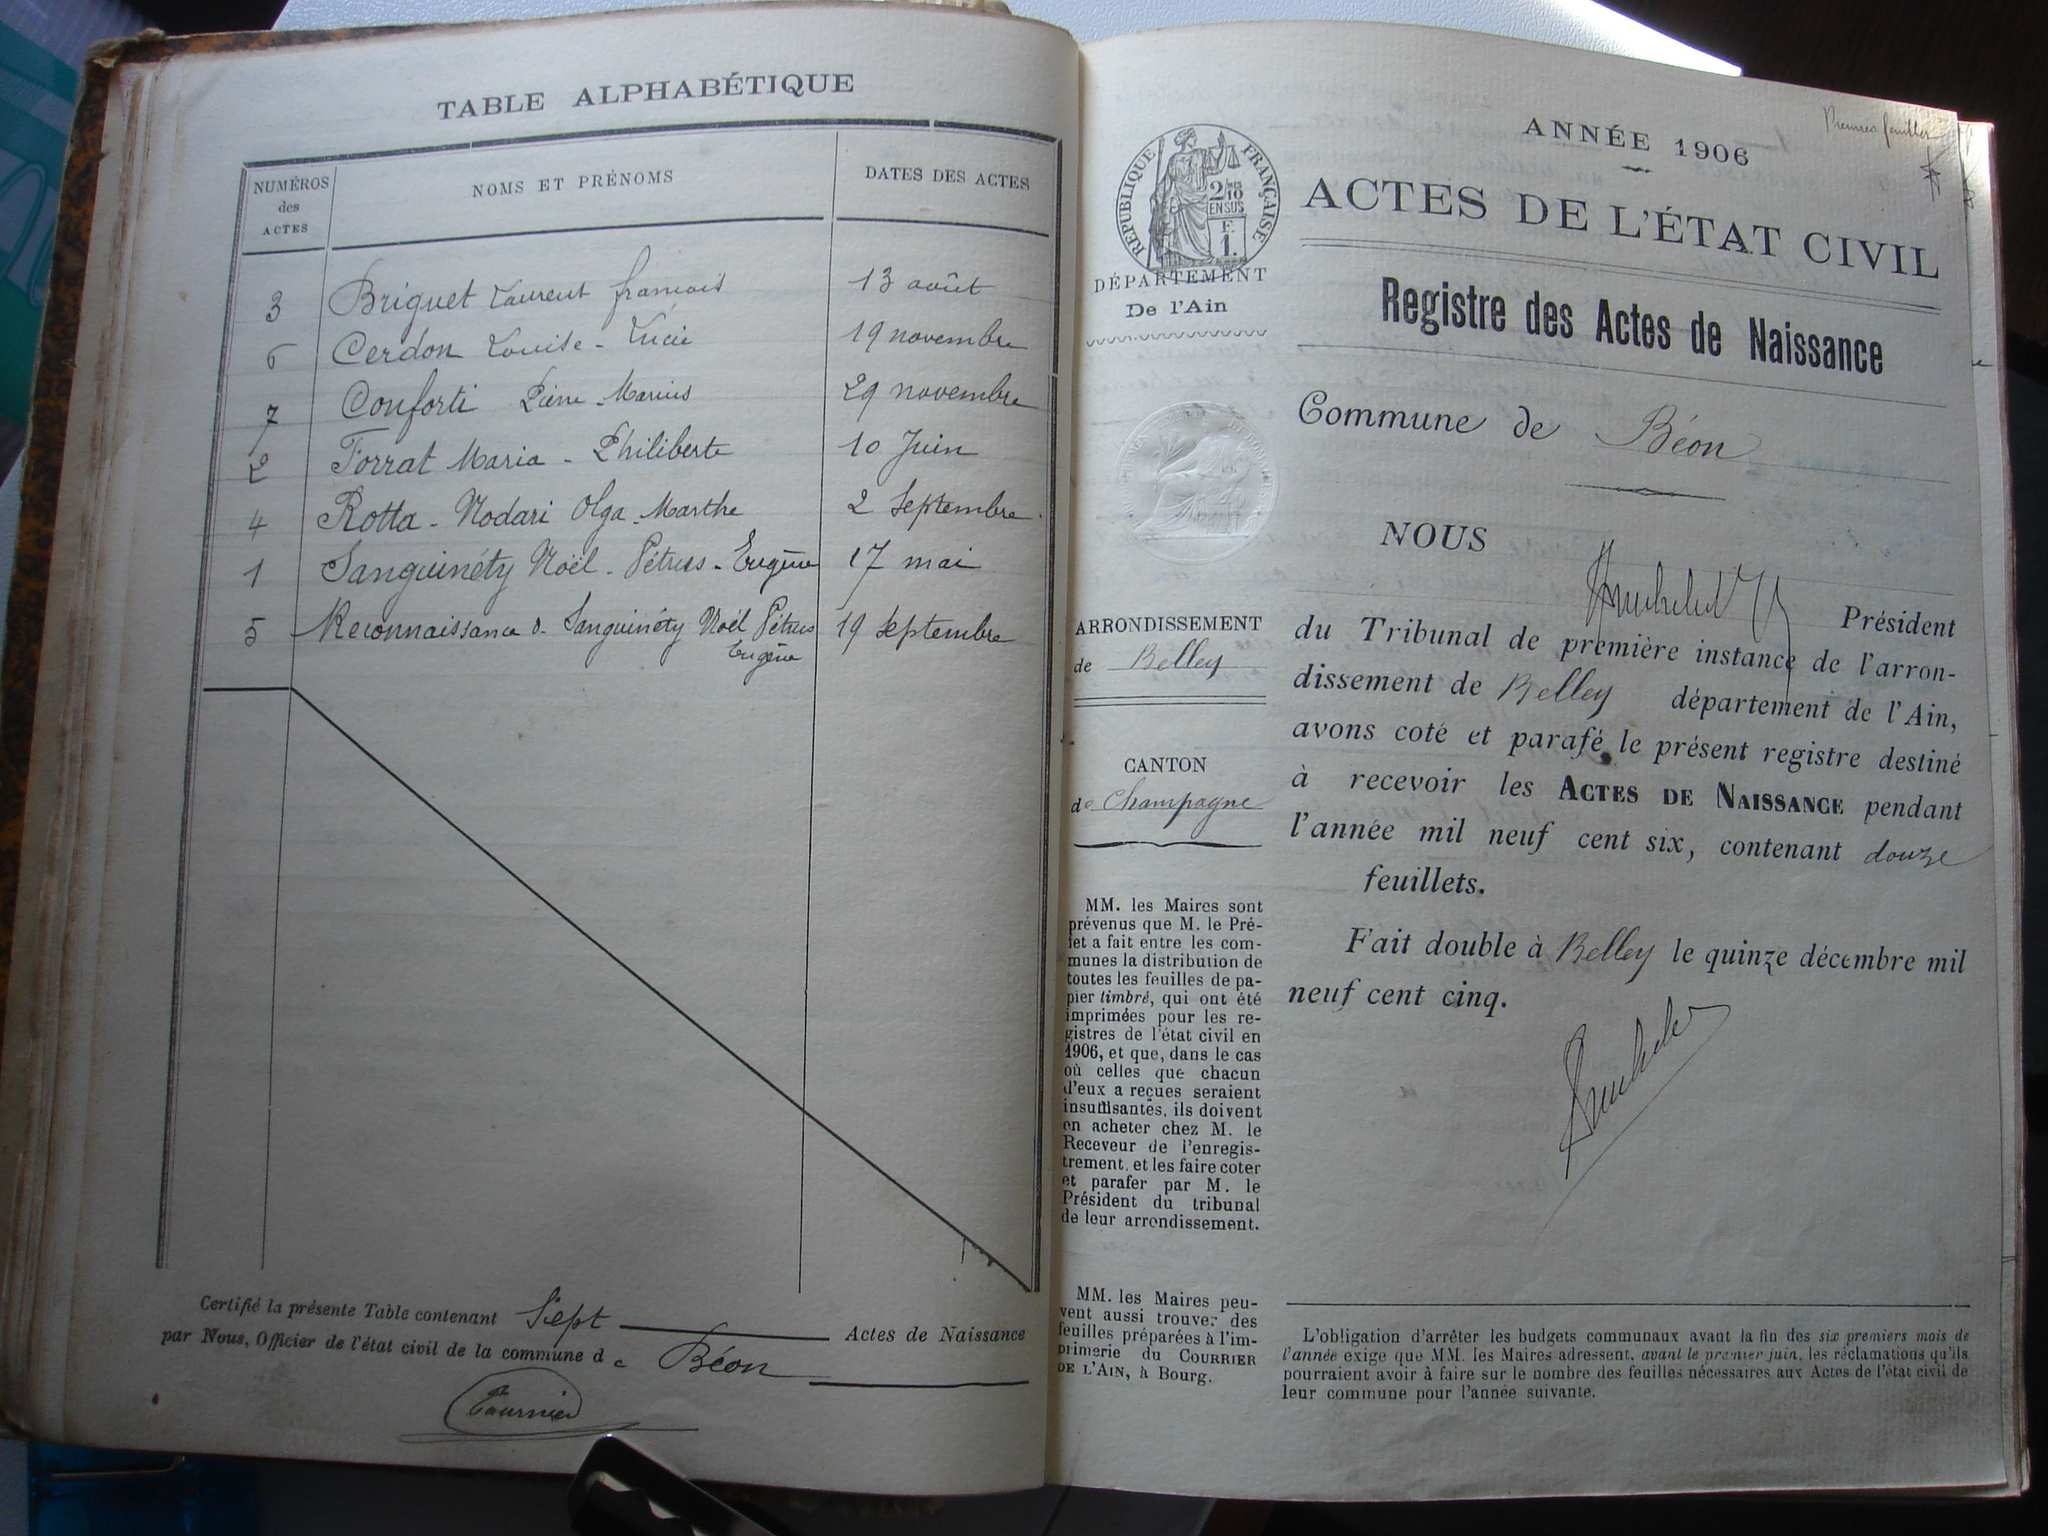 TABLE ALPHABÉTIQUE
NUMÉROS des ACTES
NOMS ET PRÉNOMS
DATES DES ACTES
3 Briguet Laurent françois 13 août
6 Cerdon Louise - Lucie 19 novembre
7 Conforti Pierre - Marius 29 novembre
2 Forrat Maria - Philiberte 10 Juin
4 Rotta - Nodari Olga - Marthe 2 Septembre
1 Sanguinéty Noël - Pétrus - Eugène 17 mai
5 Reconnaissance d. Sanguinéty Noël Pétrus 19 Septembre
Eugène
Certifié la présente Table contenant Sept Actes de Naissance
par Nous, Officier de l'état civil de la commune de Béon
Fournier
Premier feuillet
RÉPUBLIQUE FRANÇAISE
2/10
EN SUS
F.
1.
DÉPARTEMENT
De l'Ain
ARRONDISSEMENT
de Belley
CANTON
de Champagne
MM. les Maires sont
prévenus que M. le Pré-
fet a fait entre les com-
munes la distribution de
toutes les feuilles de pa-
pier timbré, qui ont été
imprimées pour les re-
gistres de l'état civil en
1906, et que, dans le cas
où celles que chacun
d'eux a reçues seraient
insuffisantes, ils doivent
en acheter chez M. le
Receveur de l'enregis-
trement, et les faire coter
et parafer par M. le
Président du tribunal
de leur arrondissement.
MM. les Maires peu-
vent aussi trouver des
feuilles préparées à l'im-
primerie du COURRIER
DE L'AIN, à Bourg.
ANNÉE 1906
ACTES DE L'ÉTAT CIVIL
Registre des Actes de Naissance
Commune de Béon
NOUS
Président
du Tribunal de première instance de l'arron-
dissement de Belley département de l'Ain,
avons coté et parafé le présent registre destiné
à recevoir les ACTES DE NAISSANCE pendant
l'année mil neuf cent six, contenant douze
feuillets.
Fait double à Belley le quinze décembre mil
neuf cent cinq.
L'obligation d'arrêter les budgets communaux avant la fin des six premiers mois de
l'année exige que MM. les Maires adressent, avant le premier juin, les réclamations qu'ils
pourraient avoir à faire sur le nombre des feuilles nécessaires aux Actes de l'état civil de
leur commune pour l'année suivante.